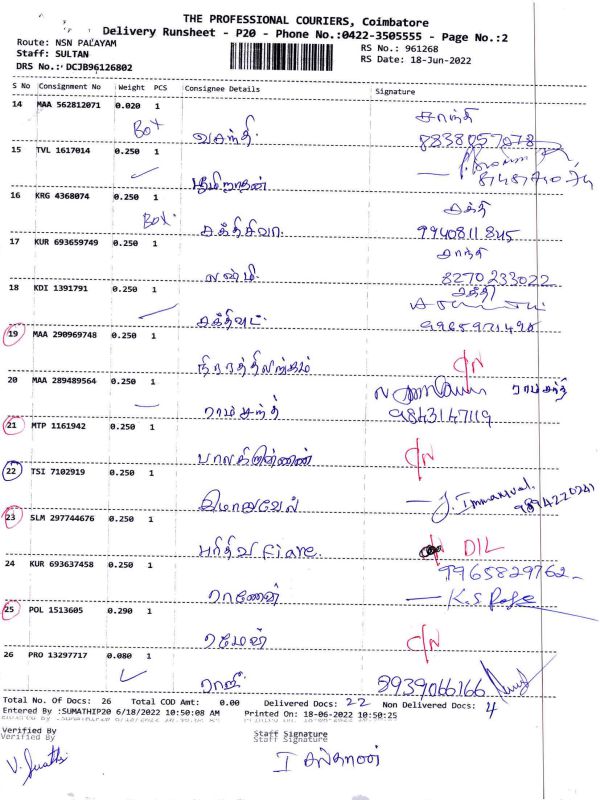 THE PROFESSIONAL COURIERS, Coimbatore
Delivery Runsheet - P20 - Phone No.:0422-3505555 - Page No.:2
Route: NSN PALAYAM
RS No.: 961268
Staff: SULTAN
RS Date: 18-Jun-2022
DRS No.: DCJB96126802
S No Consignment No Weight PCS Consignee Details Signature
14 MAA 562812071 0.020 1
சாந்தி
Box வசந்தி 8838057078
15 TVL 1617014 0.250 1
16 KRG 4368074 0.250 1
சக்தி
Box. சக்திசிவா. 9940811845
17 KUR 693659749 0.250 1
சாந்தி
லஷ்மி 8270233022
18 KDI 1391791 0.250 1
சக்தி
9965971498
19 MAA 290969748 0.250 1
C/N
20 MAA 289489564 0.250 1
ராம்சந்த் 9843147119
21 MTP 1161942 0.250 1
பாலகிருஷ்ணன் C/N
22 TSI 7102919 0.250 1
இமானுவேல் J. Immanuval.
9894220241
23 SLM 297744676 0.250 1
Fiane. D/L
24 KUR 693637458 0.250 1
9965829762
K.S
25 POL 1513605 0.290 1
ரமேஷ் C/N
26 PRO 13297717 0.080 1
ராஜீ 8939066166
Total No. Of Docs: 26 Total COD Amt: 0.00 Delivered Docs: 22 Non Delivered Docs: 4
Entered By :SUMATHIP20 6/18/2022 10:50:08 AM Printed On: 18-06-2022 10:50:25
Verified By Staff Signature
Verified By Staff Signature